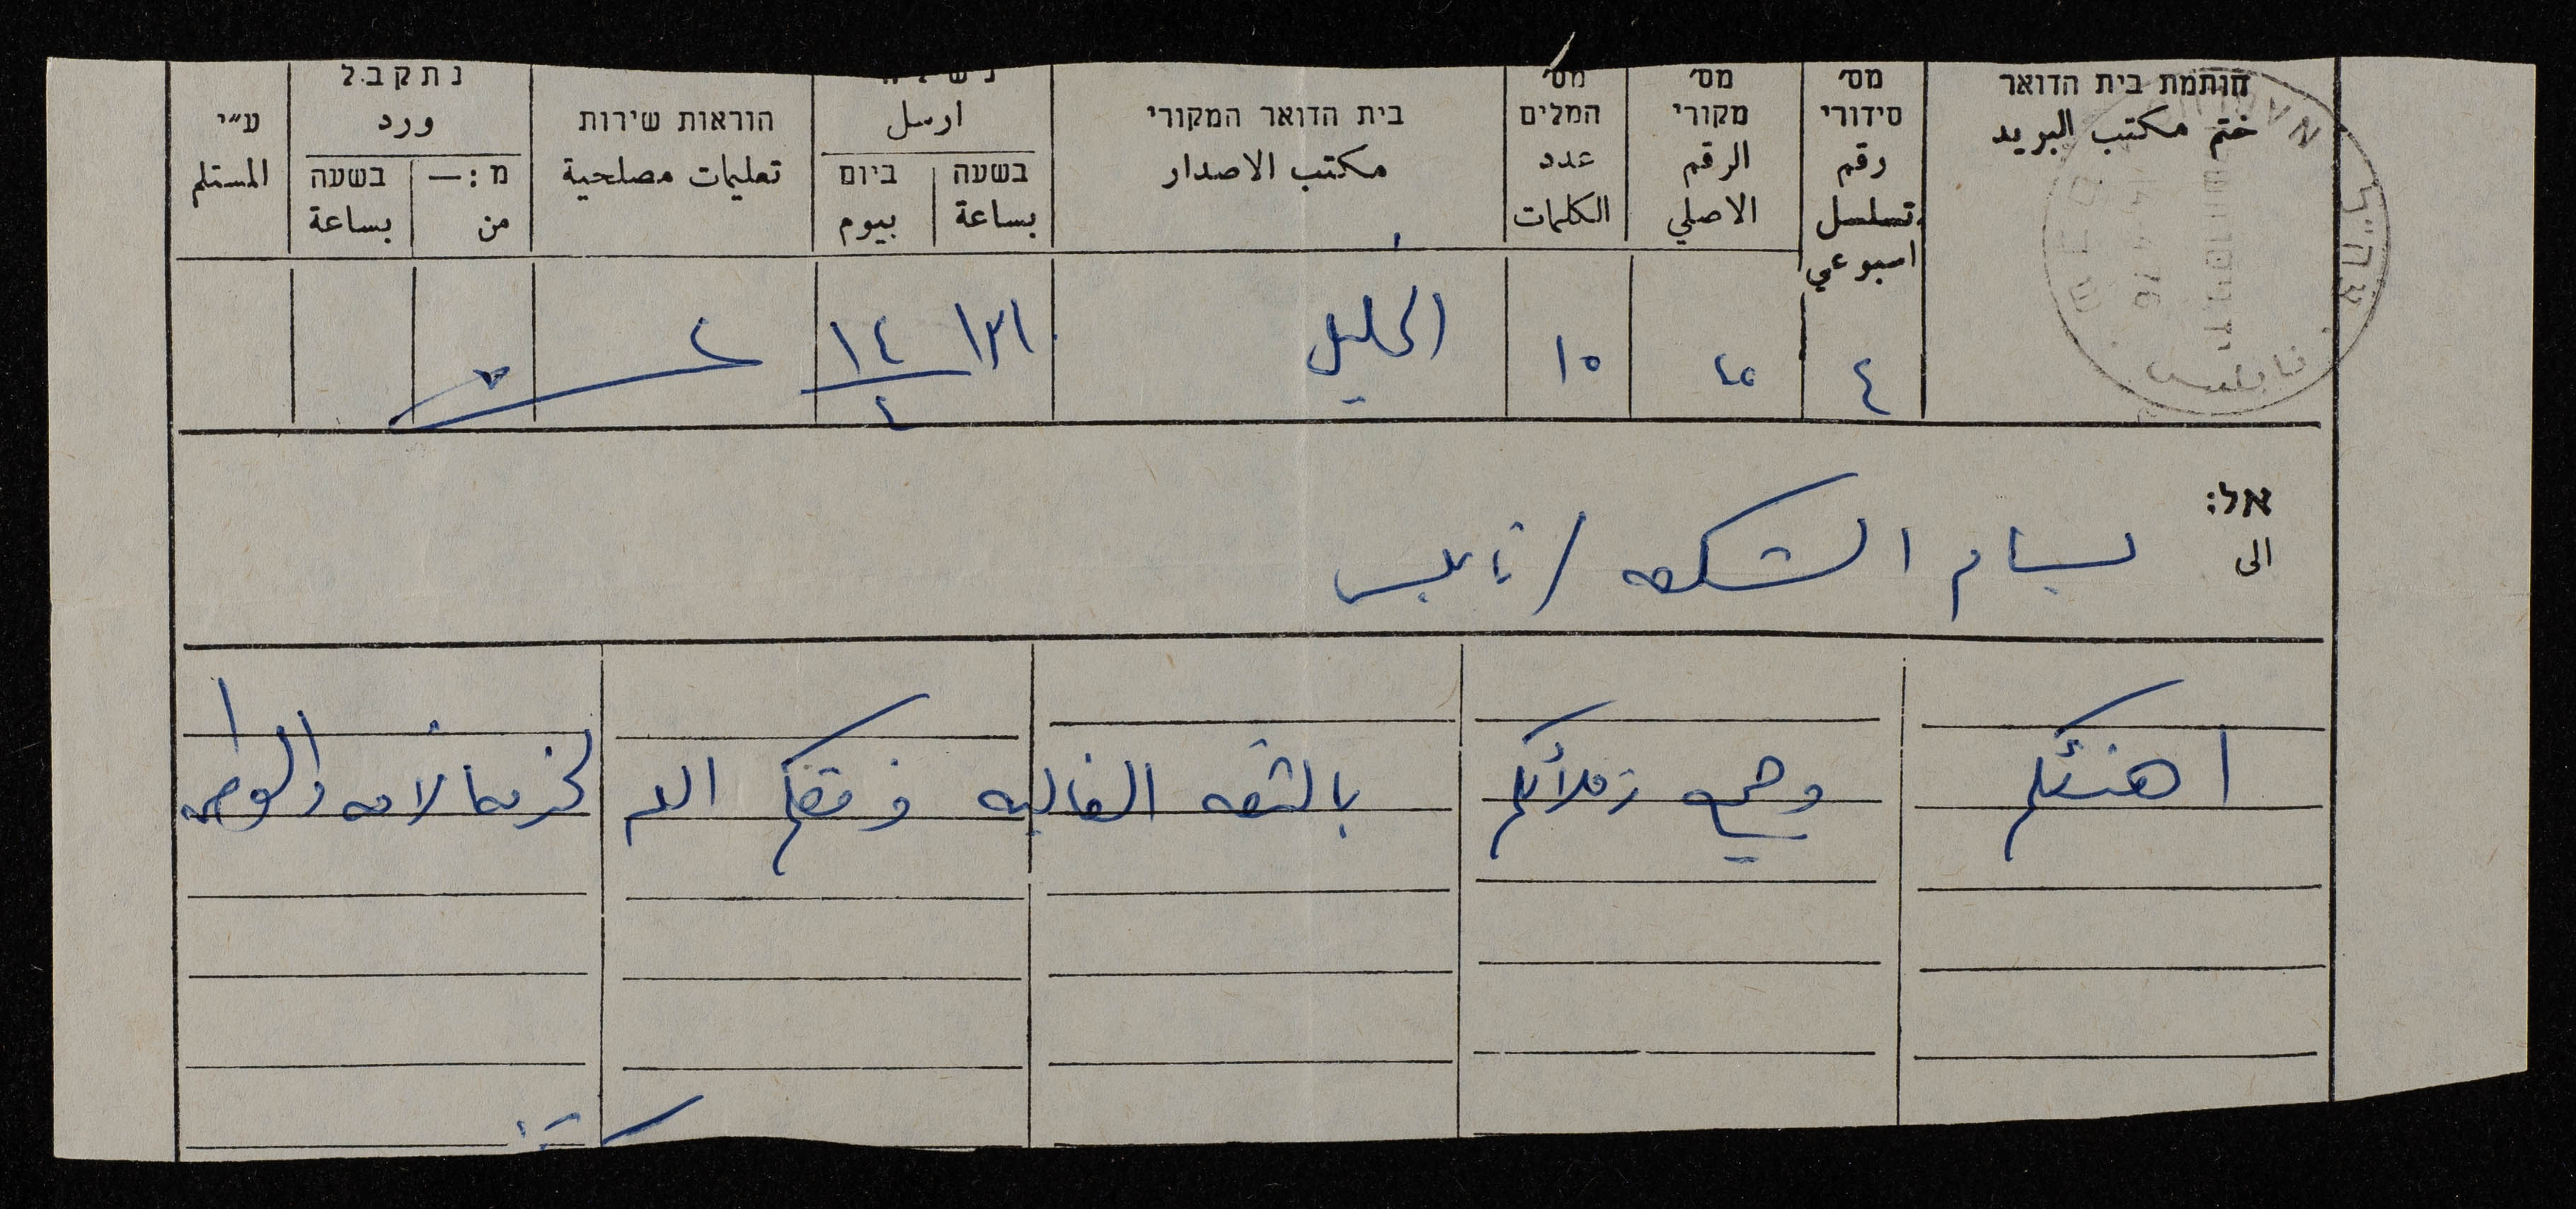 חותמת בית הדואר
ختم مكتب البريد
מס׳ סידורי
رقم تسلسل اسبوعي
מס׳ מקורי
الرقم الاصلي
מס׳ המלים
عدد الكلمات
בית הדואר המקורי
مكتب الاصدار
ارسل
בשעה
بساعة
ביום
بيوم
הוראות שירות
تعليمات مصلحية
נתקבל
ورد
מ:—
من
בשעה
بساعة
ע״י
المستلم
٤ ٤٥ ١٥ الخليل ١٣١ ١٤/٤
צה״ל
שכם
نابلس
NABLUS
אל:
الى
بسام الشكعه / نابلس
اهنئكم وجميع زملائكم بالثقه الغاليه وفقكم الله لخدمة الامه والوطن